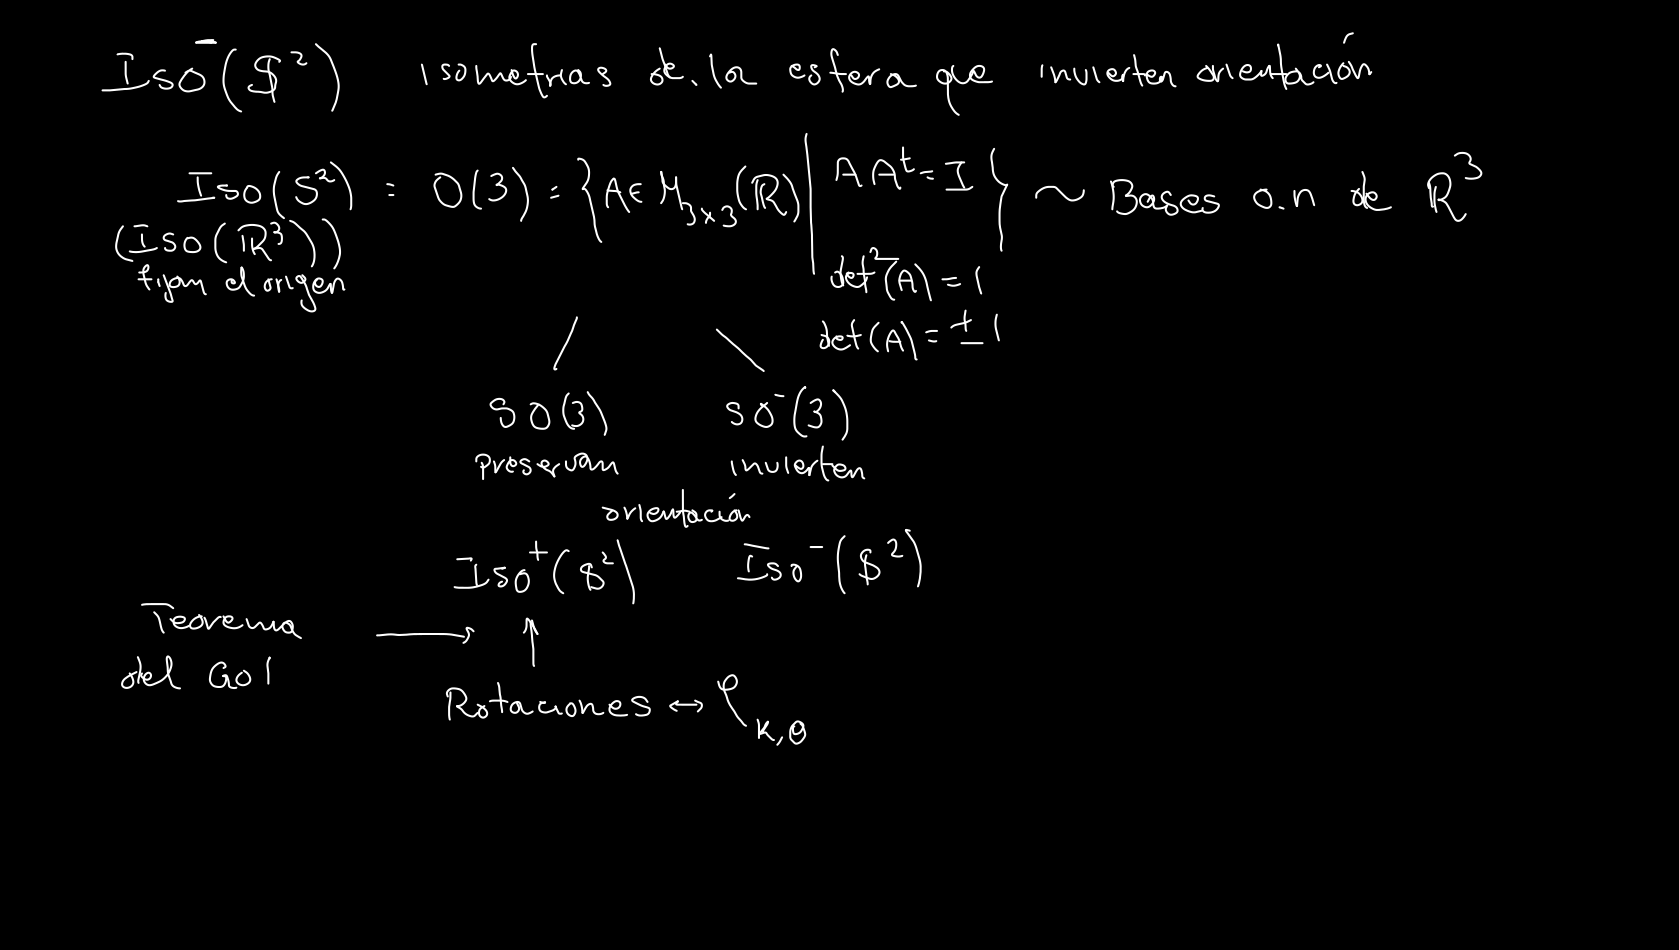 Iso⁻($²) isometrias de la esfera que invierten orientación
Iso(S²) = O(3) = {A ∈ M₃ₓ₃(ℝ) | AAᵗ = I} ~ Bases o.n de ℝ³
(Iso(ℝ³))
fijan el origen
det²(A) = 1
det(A) = ± 1
SO(3) SO⁻(3)
preservan invierten
orientación
Iso⁺($²) Iso⁻($²)
Teorema →
del Gol
↑
Rotaciones ↔ φ_{K,θ}